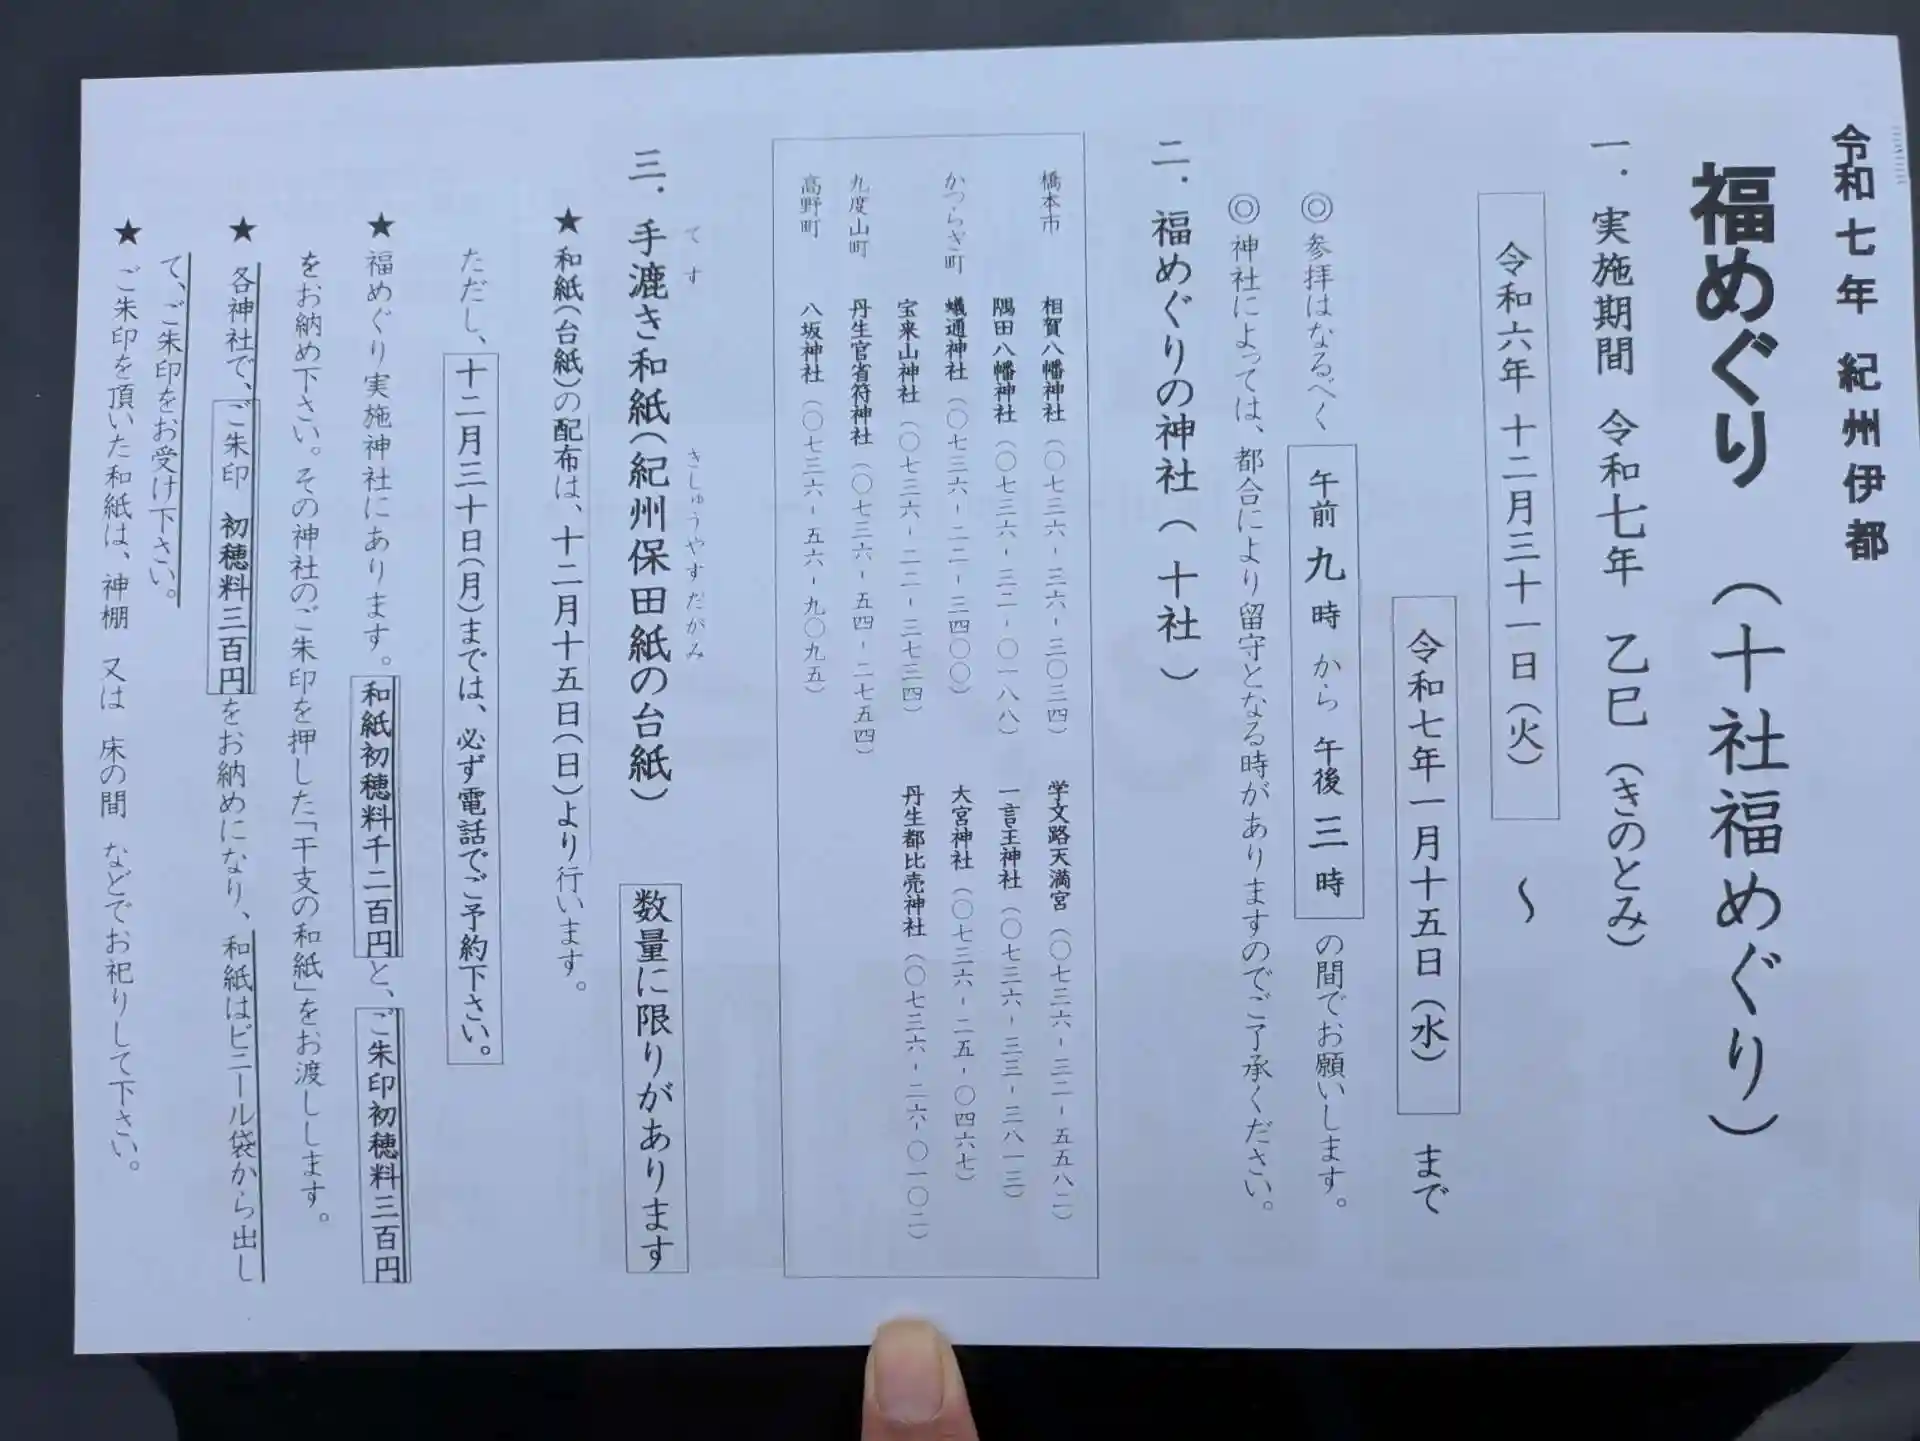 令和七年 紀州伊都
福めぐり （十社福めぐり）
一．実施期間 令和七年 乙巳（きのとみ）
令和六年 十二月三十一日（火） ～
令和七年一月十五日（水） まで
◎参拝はなるべく 午前 九 時 から 午後 三 時 の間でお願いします。
◎神社によっては、都合により留守となる時がありますのでご了承ください。
二．福めぐりの神社（十社）
橋本市 相賀八幡神社（〇七三六-三六-三〇三四） 学文路天満宮（〇七三六-三二-五五八二）
隅田八幡神社（〇七三六-三二-〇一八八） 一言主神社（〇七三六-三三-三八一三）
かつらぎ町 蟻通神社（〇七三六-二二-三四〇〇） 大宮神社（〇七三六-二五-〇四六七）
宝来山神社（〇七三六-二二-三七三四） 丹生都比売神社（〇七三六-二六-〇一〇二）
九度山町 丹生官省符神社（〇七三六-五四-二七五四）
高野町 八坂神社（〇七三六-五六-九〇九五）
てす きしゅうやすだがみ
三．手漉き和紙（紀州保田紙の台紙） 数量に限りがあります
★和紙（台紙）の配布は、十二月十五日（日）より行います。
ただし、十二月三十日（月）までは、必ず電話でご予約下さい。
★福めぐり実施神社にあります。和紙初穂料千二百円と、ご朱印初穂料三百円
をお納め下さい。その神社のご朱印を押した「干支の和紙」をお渡しします。
★各神社で、ご朱印 初穂料三百円をお納めになり、和紙はビニール袋から出し
て、ご朱印をお受け下さい。
★ご朱印を頂いた和紙は、神棚 又は 床の間 などでお祀りして下さい。